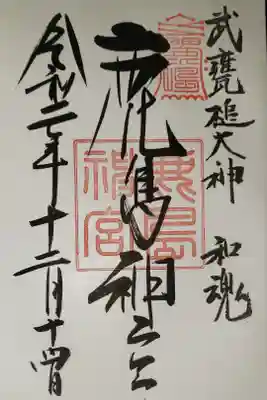 武甕槌大神 和魂
鹿島神宮
鹿島
神宮
令和二年十二月十四日